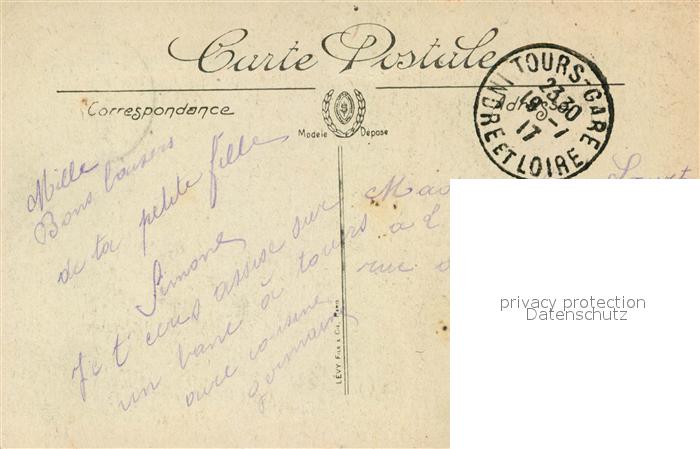 Carte Postale
Correspondance
Adresse
Modèle Déposé
TOURS-GARE
23 30
19-1
17
INDRE ET LOIRE
Mille
Bons baisers
de ta petite fille
Simone
Je t'écris assise sur
un banc à tours
avec cousine
germaine
à
rue
LÉVY FILS & CIE, PARIS
privacy protection
Datenschutz